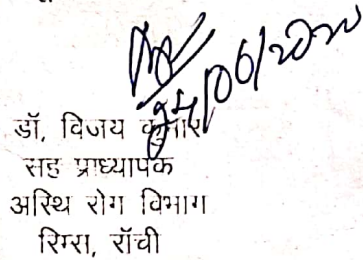 24/06/2020
डॉ. विजय कुमार
सह प्राध्यापक
अस्थि रोग विभाग
रिम्स, राँची